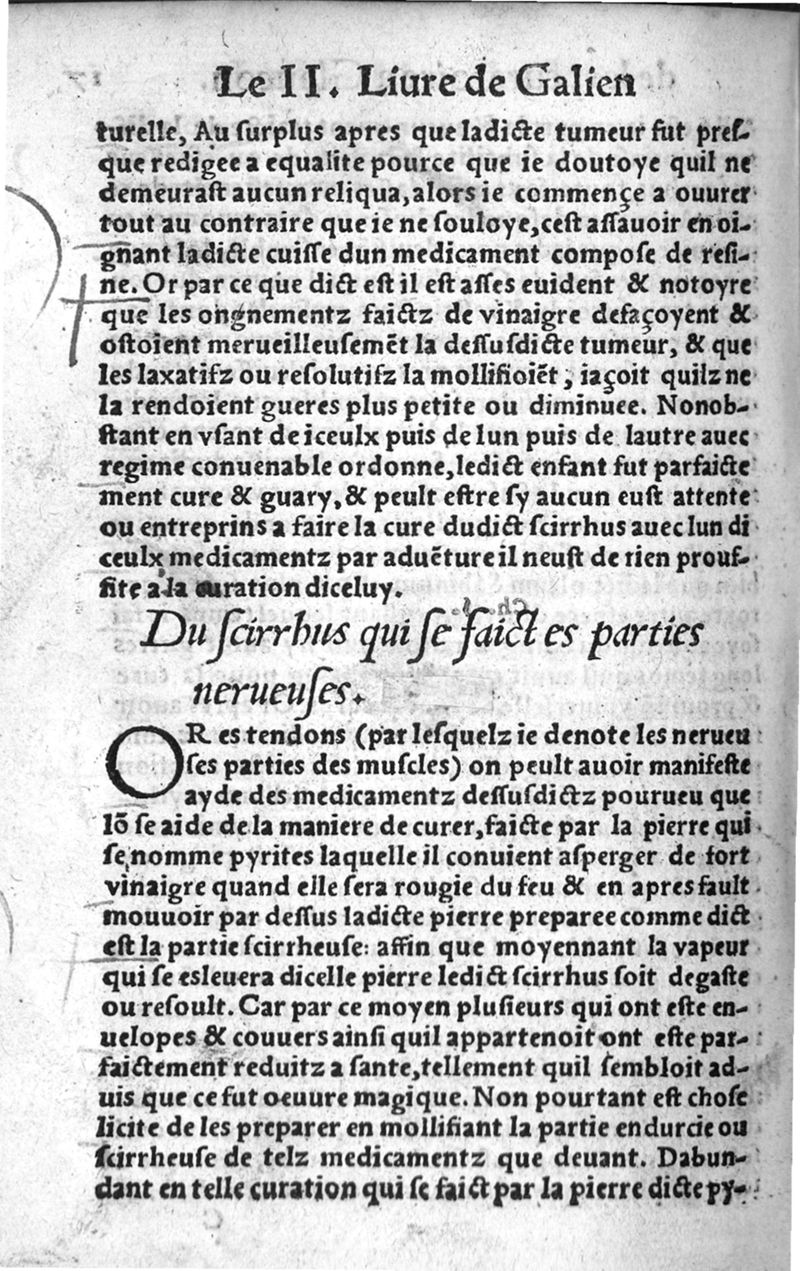 Le II. Liure de Galien
turelle, Au surplus apres que ladicte tumeur fut pres-
que redigee a equalite pource que ie doutoye quil ne
demeurast aucun reliqua, alors ie commençe a ouurer
tout au contraire que ie ne souloye, cest assauoir en oi-
gnant ladicte cuisse dun medicament compose de resi-
ne. Or par ce que dict est il est asses euident & notoyre
que les ongnementz faictz de vinaigre defaçoyent &
ostoient merueilleusemēt la dessusdicte tumeur, & que
les laxatifz ou resolutifz la mollifioiēt, iaçoit quilz ne
la rendoient gueres plus petite ou diminuee. Nonob-
stant en vsant de iceulx puis de lun puis de lautre auec
regime conuenable ordonne, ledict enfant fut parfaicte
ment cure & guary, & peult estre sy aucun eust attente
ou entreprins a faire la cure dudict scirrhus auec lun di
ceulx medicamentz par aduēture il neust de rien prouf-
fite a la curation diceluy.
Du scirrhus qui se faict es parties
nerueuses.
OR es tendons (par lesquelz ie denote les nerueu
ses parties des muscles) on peult auoir manifeste
ayde des medicamentz dessusdictz pourueu que
lō se aide de la maniere de curer, faicte par la pierre qui
se nomme pyrites laquelle il conuient asperger de fort
vinaigre quand elle sera rougie du feu & en apres fault
mouuoir par dessus ladicte pierre preparee comme dict
est la partie scirrheuse: affin que moyennant la vapeur
qui se esleuera dicelle pierre ledict scirrhus soit degaste
ou resoult. Car par ce moyen plusieurs qui ont este en-
uelopes & couuers ainsi quil appartenoit ont este par-
faictement reduitz a sante, tellement quil sembloit ad-
uis que ce fut oeuure magique. Non pourtant est chose
licite de les preparer en mollifiant la partie endurcie ou
scirrheuse de telz medicamentz que deuant. Dabun-
dant en telle curation qui se faict par la pierre dicte py-